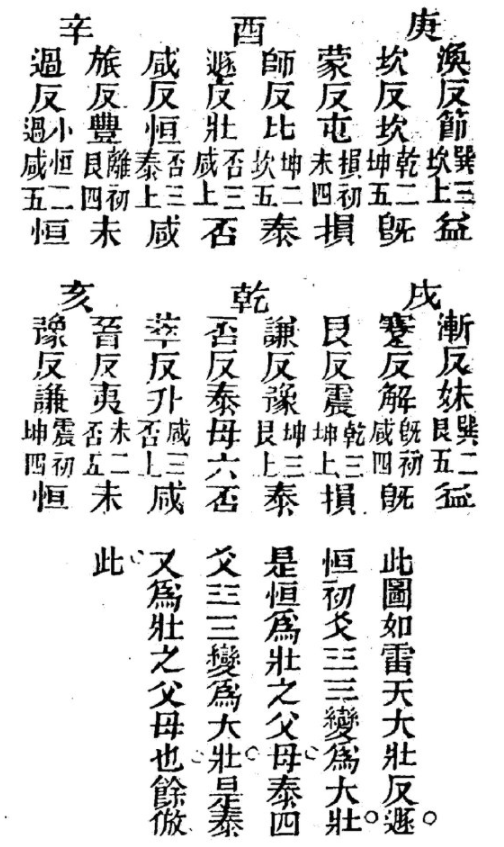 庚
渙反節巽三坎上益
坎反坎乾二坤五既
蒙反屯損初未四損
酉
師反比坤二坎五泰
遯反壯否三咸上否
咸反恒否三泰上咸
辛
旅反豐離初艮四未
過反小過恒二咸五恒
戌
漸反妹巽二艮五益
蹇反解既初咸四既
艮反震乾三坤上損
乾
謙反豫坤三艮上泰
否反泰母六否
萃反升咸三否上咸
亥
晉反夷未二否五未
豫反謙震初坤四恒
此圖如雷天大壯反遯。
恒初爻三三變爲大壯。
是恒爲壯之父母。泰四
爻三三變爲大壯。是泰
又爲壯之父母也餘倣
此。